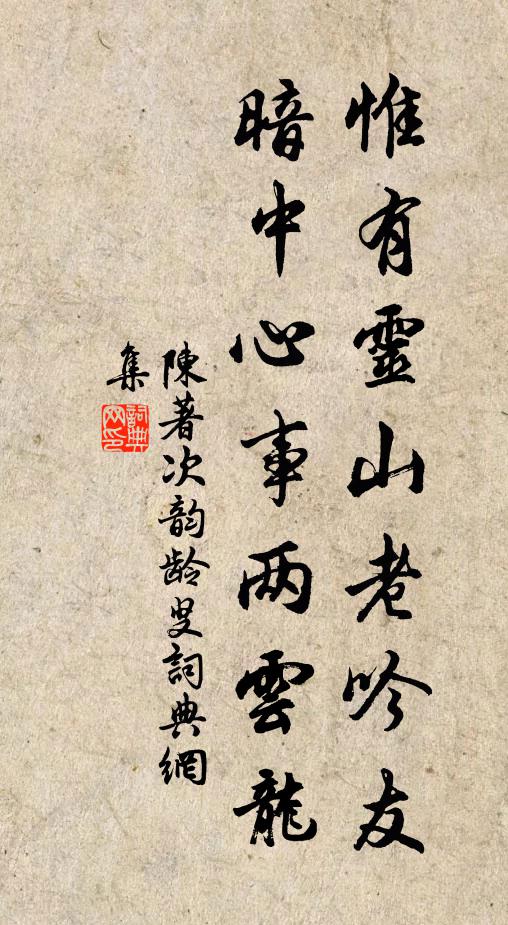 惟有靈山老吟友
暗中心事两雲龍
陳著次韵龄叟詞典網
集
詞典
网印